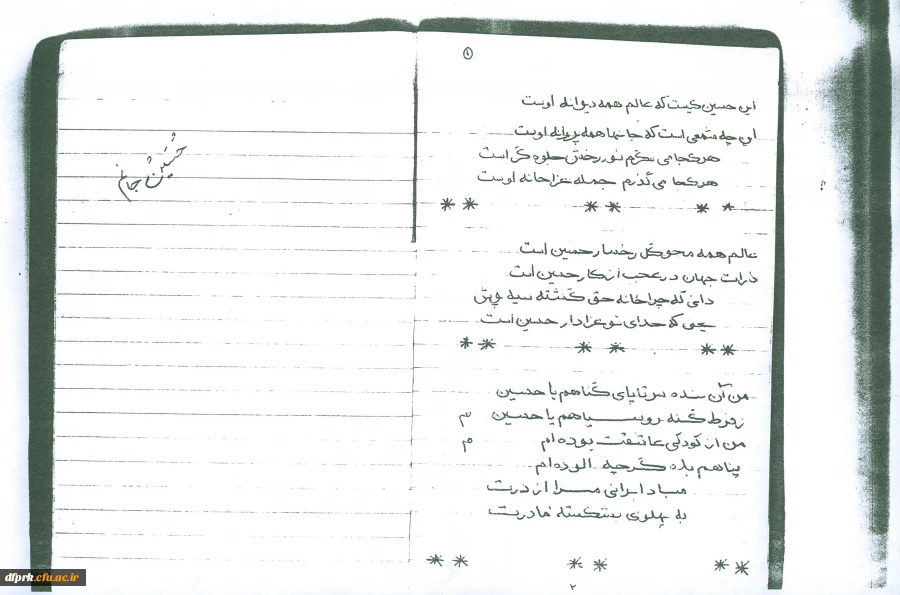 ۱
این حسین کیست که عالم همه دیوانه اوست
این چه شمعی است که جانها همه پروانه اوست
هر کجا می نگرم نور رخش جلوه گر است
هر کجا می گذرم جمله عزاخانه اوست
** ** **
عالم همه محو گل رخسار حسین است
ذرات جهان در عجب از کار حسین است
دانی که چرا خانه حق گشته سیه پوش
یعنی که خدای تو عزادار حسین است
** ** **
من آن بنده سر تا پای گناهم یا حسین
ز فرط گنه رو سیاهم یا حسین ۳
من از کودکی عاشقت بوده ام ۳
پناهم بده گرچه آلوده ام
مباد برانی مرا از درت
به پهلوی بشکسته مادرت
** ** **
۲
حسین جانم
dfprk.cfu.ac.ir